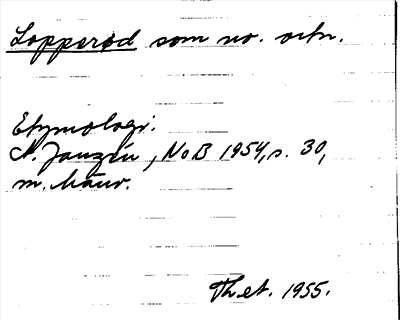 Lopperød som no. ortn.
Etymologi.
A. Janzén, NoB 1954, s. 30,
m. hänv.
Th.et. 1955.